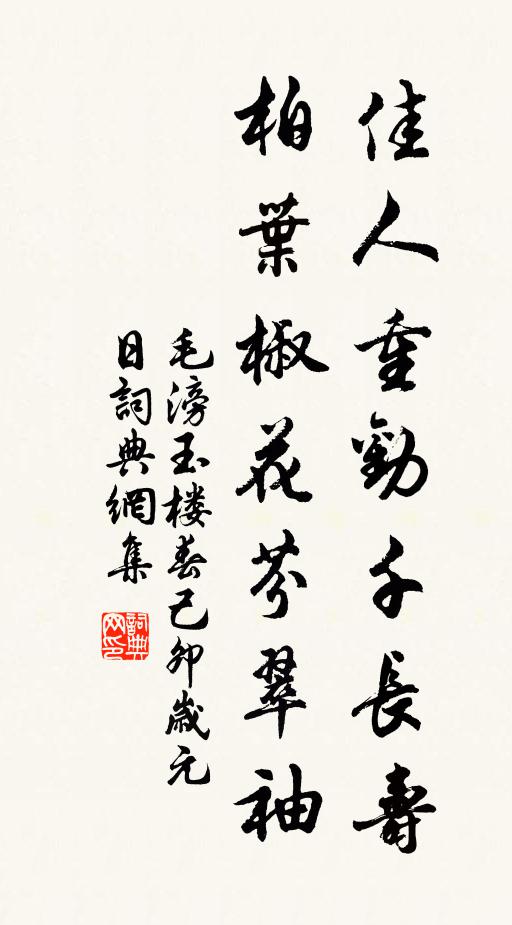 佳人重勸千長壽
柏葉椒花芬翠袖
毛滂玉楼春己卯歲元
日詞典網集
詞典
网印